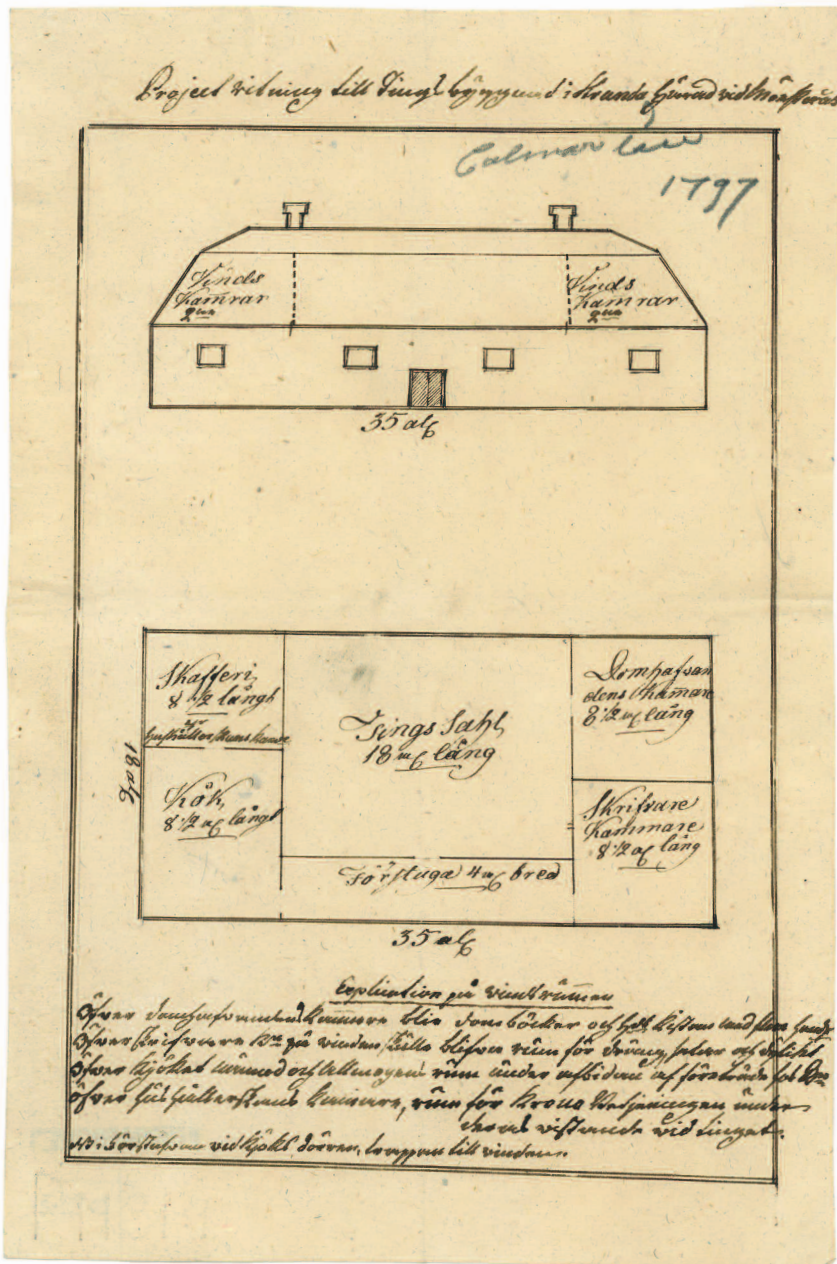 Project ritning till Tings byggnad i Stranda Härad vid Mönsterås
Calmar län
1797
Vinds
Kamrar
2ne
Vinds
Kamrar
2ne
35 al
Skafferi
8 1/2 långt
Kök
8 1/2 al långt
18 al
Tings Sahl
18 al lång
Förstuga 4 al bred
Domhafvan
dens Kamare
8 1/2 al lång
Skrifvare
Kammare
8 1/2 al lång
35 al
Explication på vindsrummen
Öfver domhafvandens Kammare blir domböcker och
Öfver Skrifvare på vinden blifver rum för dräng
Öfver Kjöket nämnd och Allmogens rum under afbidan af företräde
Öfver Kamare, rum för Krono Betjeningen under
deras vistande vid Tinget.
NB i förstufvan vid Kjöks dörren, trappan till vinden.